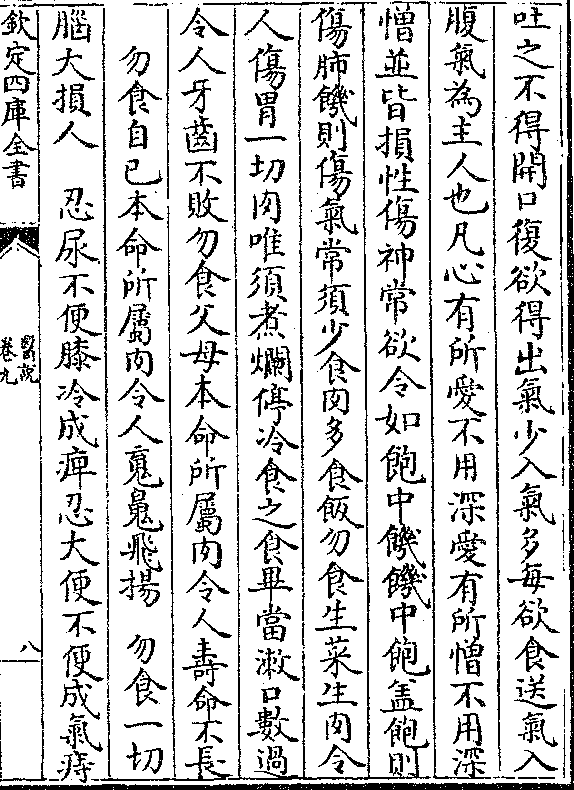 吐之不得開口復欲得出氣少入氣多每欲食送氣入
腹氣為主人也凡心有所愛不用深愛有所憎不用深
憎並皆損性傷神常欲令如飽中饑饑中飽盖飽則
傷肺饑則傷氣常須少食肉多食飯勿食生菜生肉令
人傷胃一切肉唯須煮爛停冷食之食畢當漱口數過
令人牙齒不敗勿食父母本命所屬肉令人壽命不長
勿食自己本命所屬肉令人䰟䰟飛揚　勿食一切
腦大損人　忍尿不便膝冷成痺忍大便不便成氣痔
欽定四庫全書
醫說
卷九
八